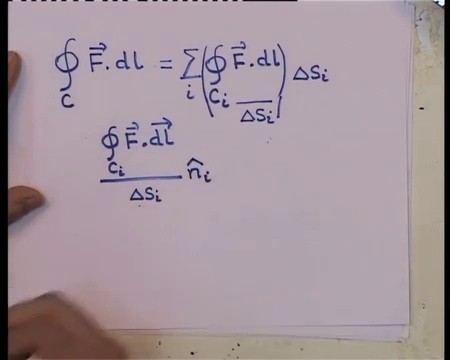 ∮_C F⃗.dl = Σ_i (∮_{C_i} F⃗.dl / ΔS_i) ΔS_i
∮_{C_i} F⃗.dl⃗ / ΔS_i n̂_i